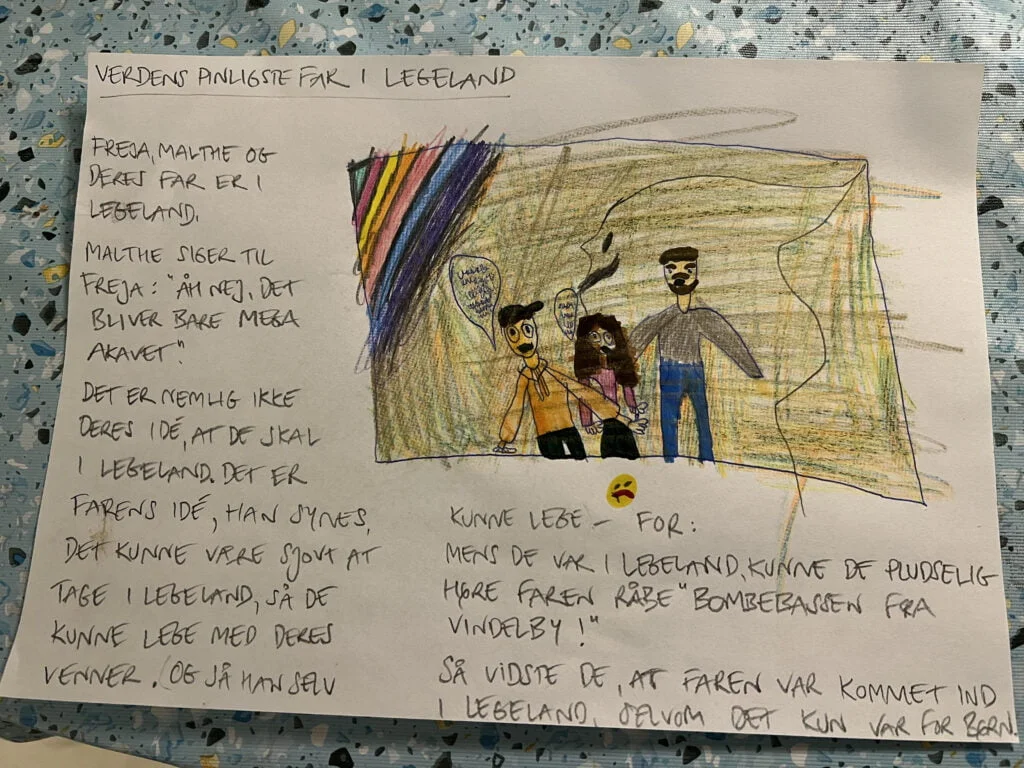 VERDENS PINLIGSTE FAR I LEGELAND
FREJA, MALTHE OG
DERES FAR ER I
LEGELAND.
MALTHE SIGER TIL
FREJA: "ÅH NEJ, DET
BLIVER BARE MEGA
AKAVET".
DET ER NEMLIG IKKE
DERES IDÉ, AT DE SKAL
I LEGELAND. DET ER
FARENS IDÉ, HAN SYNES,
DET KUNNE VÆRE SJOVT AT
TAGE I LEGELAND, SÅ DE
KUNNE LEGE MED DERES
VENNER. (OG SÅ HAN SELV
KUNNE LEGE – FOR:
MENS DE VAR I LEGELAND, KUNNE DE PLUDSELIG
HØRE FAREN RÅBE "BOMBEBASSEN FRA
VINDELBY!"
SÅ VIDSTE DE, AT FAREN VAR KOMMET IND
I LEGELAND, SELVOM DET KUN VAR FOR BØRN.